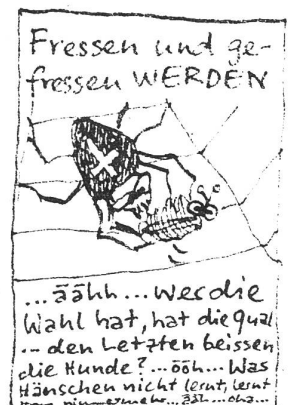 Fressen und ge-
fressen WERDEN
...äähh...Wer die
Wahl hat, hat die Qual
... den Letzten beissen
die Hunde?...ööh...Was
Hänschen nicht lernt, lernt
nimmermehr...ääh...oha...